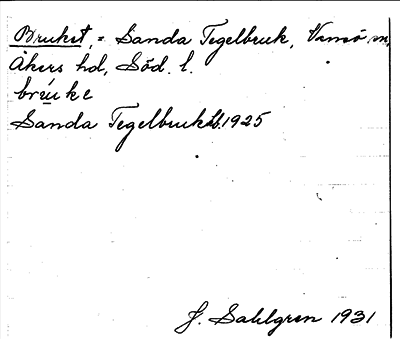 Bruket, = Sanda Tegelbruk, Vansö sn,
Åkers hd, Söd. l.
brúke
Sanda Tegelbruk Jb. 1925
J. Sahlgren 1931